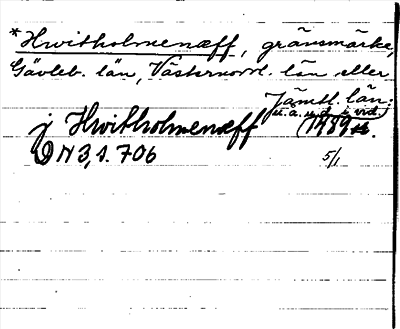 *Hwitholmenæff, gränsmärke,
Gävleb. län, Västernorrl. län eller
Jämtl. län;
j Hwitholmenæff (1489
DN 3, s. 706 5/1